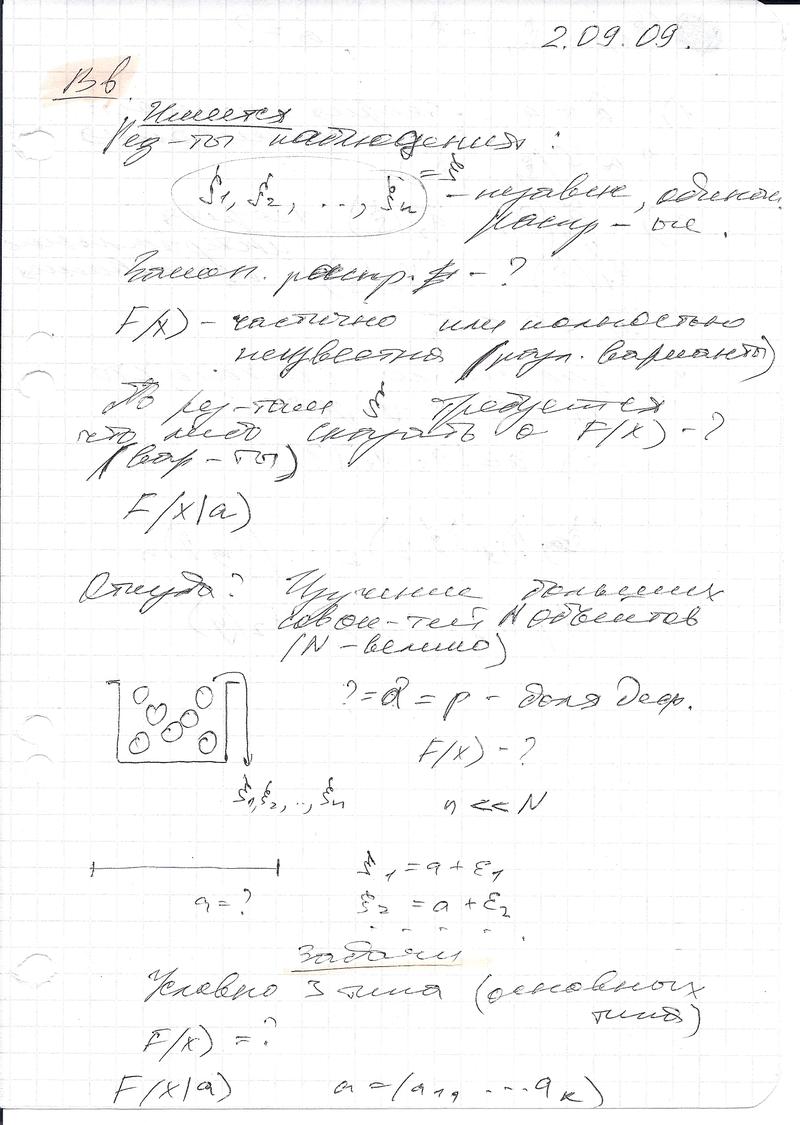 2.09.09.
Вв.
Имеется
Рез-ты наблюдения:
ξ1, ξ2, ..., ξn = ξ - независ, одинак.
распр-ые.
Закон. распр. - ?
F(x) - частично или полностью
неизвестна (разл. варианты)
По рез-там ξ требуется
что либо сказать о F(x) - ?
(вар-ты)
F(x|a)
Откуда? Изучение больших
совок-тей N объектов
(N - велико)
? = a = p - доля деф.
F(x) - ?
ξ1, ξ2, .., ξn
n << N
ξ1 = a + ε1
a = ?
ξ2 = a + ε2
. . . . .
Задачи
Условно 3 типа (основных
типа)
F(x) = ?
F(x|a) a = (a1, ... ak)